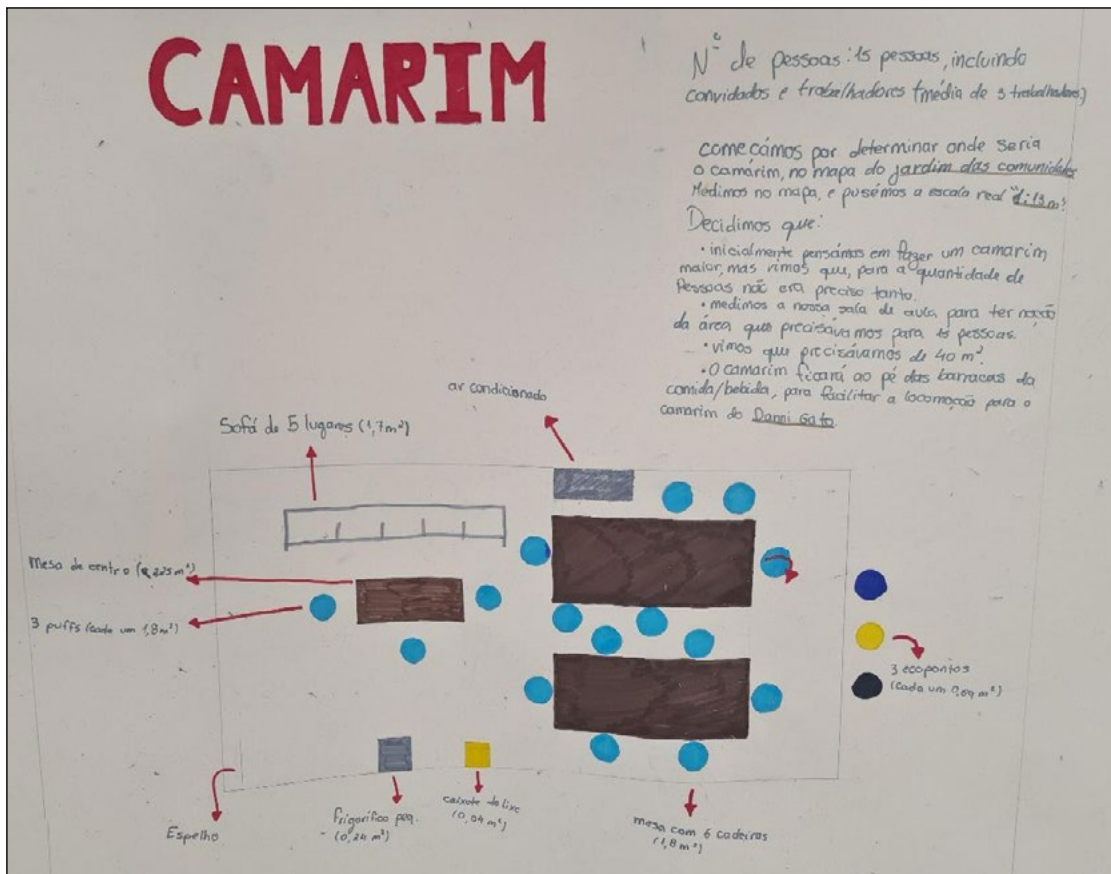 CAMARIM
Nº de pessoas: 15 pessoas, incluindo
convidados e trabalhadores (média de 3 trabalhadores)
começámos por determinar onde seria
o camárim, no mapa do jardim das comunidades
Medimos no mapa, e pusémos a escala real "1:13m".
Decidimos que:
• inicialmente pensámos em fazer um camarim
maior, mas vimos que, para a quantidade de
Pessoas não era preciso tanto.
• medimos a nossa sala de aula para ter noção
da área que precisávamos para 15 pessoas.
• vimos que precisávamos de 40 m².
• O camarim ficará ao pé das barracas da
comida/bebida, para facilitar a locomoção para o
camarim do Danni Gato.
ar condicionado
Sofá de 5 lugares (1,7m²)
Mesa de centro (0,225m²)
3 puffs (cada um 1,8m²)
3 ecopontos
(cada um 0,69 m²)
Espelho
frigorífico peq.
(0,24 m²)
caixote do lixo
(0,04 m²)
mesa com 6 cadeiras
(1,8m²)